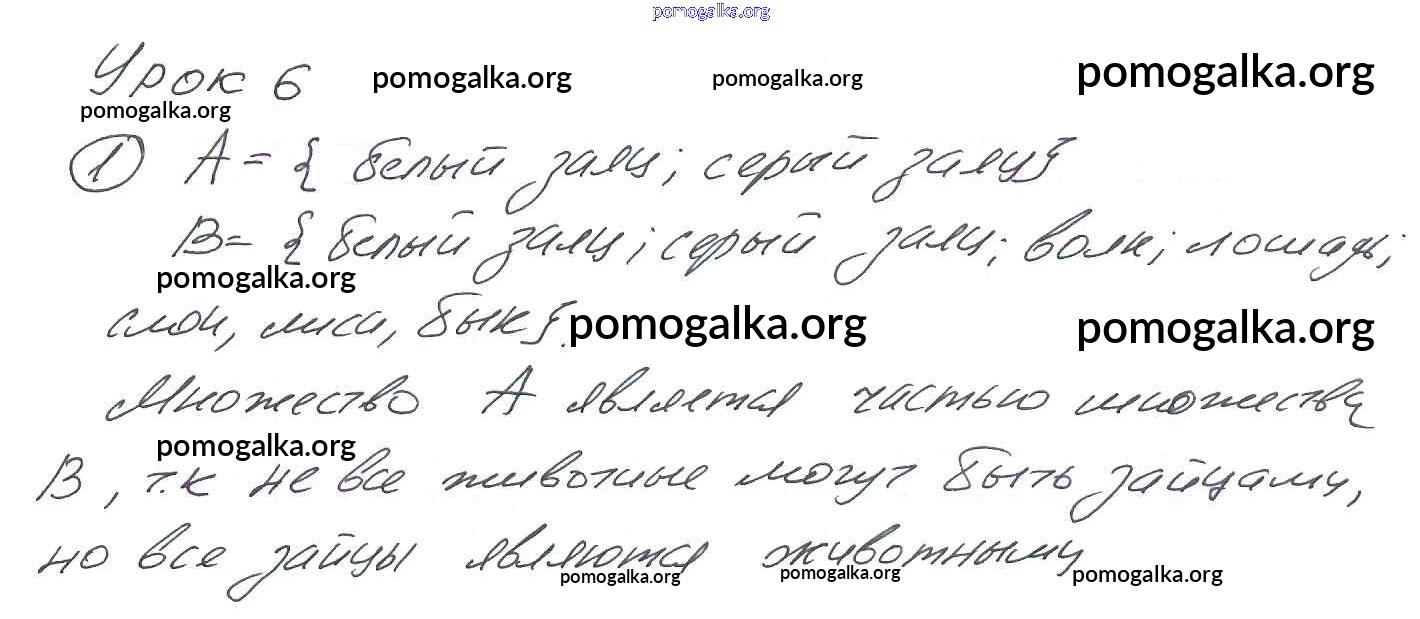 pomogalka.org
Урок 6 pomogalka.org pomogalka.org pomogalka.org
pomogalka.org
① A = { белый заяц; серый заяц}
B = { белый заяц; серый заяц; волк; лошадь;
pomogalka.org
слон, лиса, бык}. pomogalka.org pomogalka.org
Множество A является частью множества
pomogalka.org
B, т.к не все животные могут быть зайцами,
но все зайцы являются животными
pomogalka.org pomogalka.org pomogalka.org